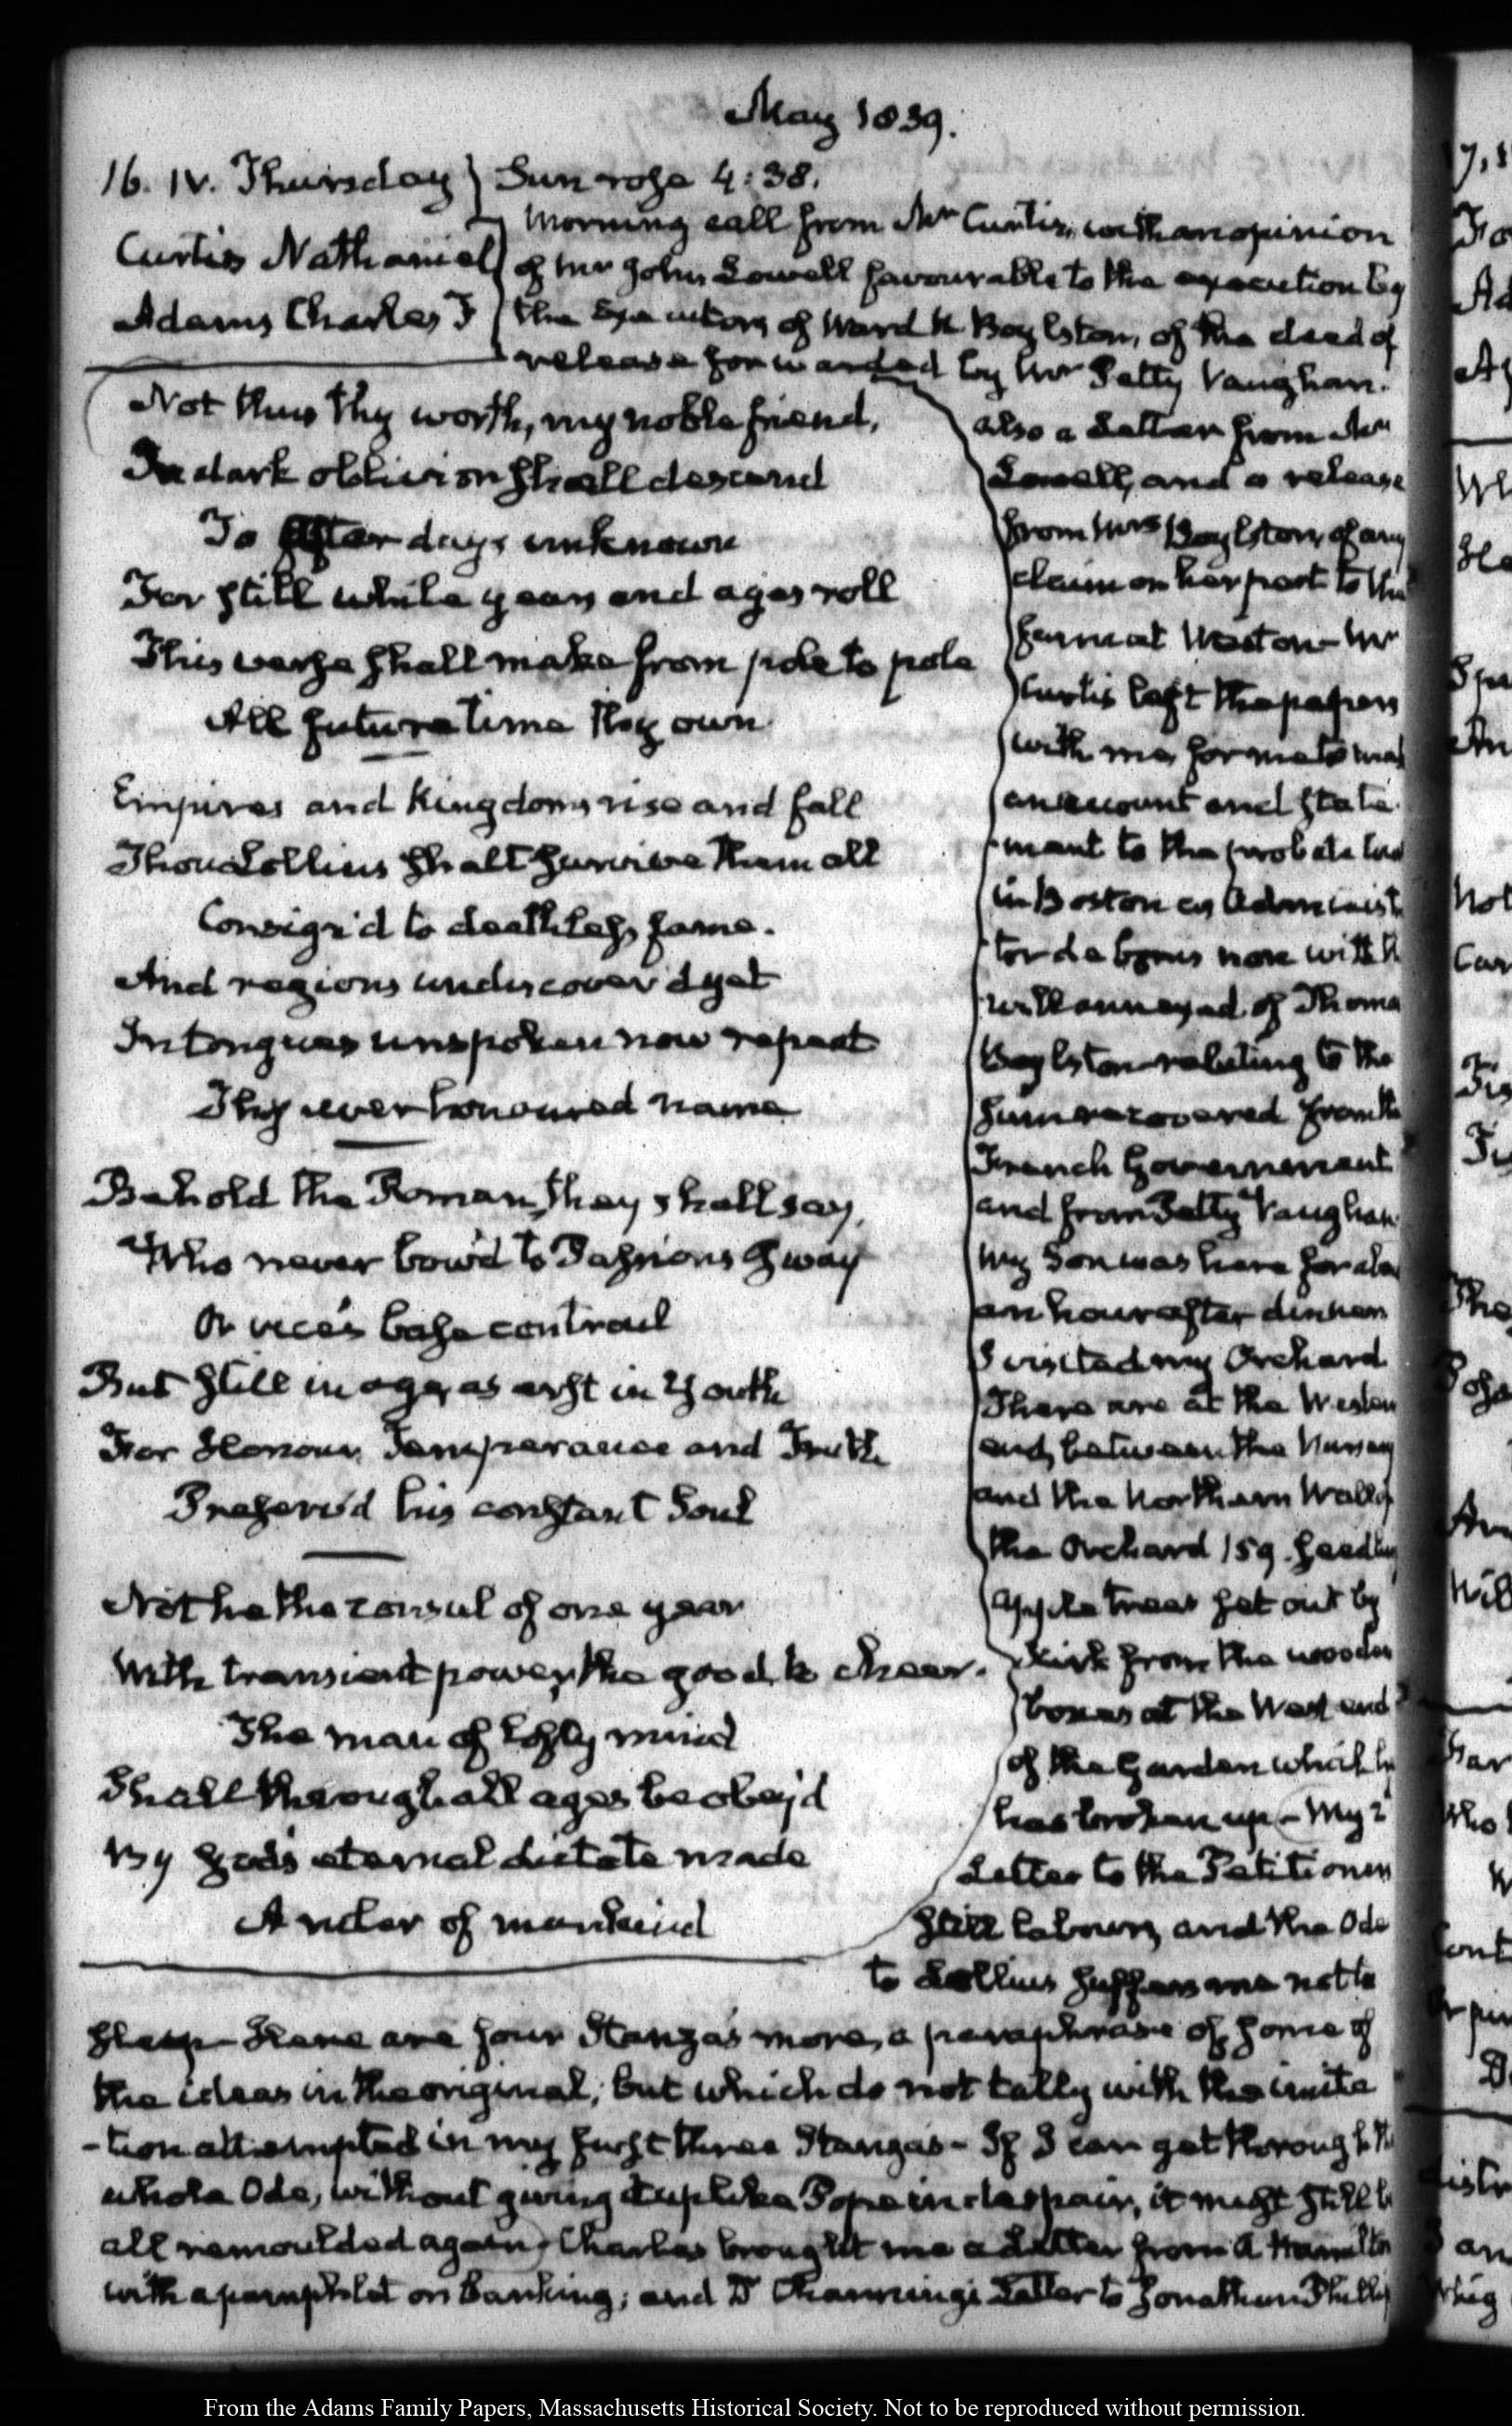 May 1839.
16. IV. Thursday
Curtis Nathaniel
Adams Charles F
Sun rose 4:38.
Morning call from Mr Curtis, with an opinion
of Mr John Lowell favourable to the execution by
the Executors of Ward N. Boylston, of the deed of
release forwarded by Mr Petty Vaughan.
Not thus thy worth, my noble friend,
In dark oblivion shall descend
To after days unknown
For still while years and ages roll
This verse shall make from pole to pole
All future time thy own
Empires and kingdoms rise and fall
Thou Lollius shalt survive them all
Consign'd to deathless fame.
And regions undiscover'd yet
In tongues unspoken now repeat
Thy ever honoured name
Behold the Roman, they shall say,
Who never bow'd to Passions sway
Or vice's base controul
But still in age, as erst in Youth
For Honour, Temperance and Truth
Preserv'd his constant Soul
Not he the consul of one year
With transient power, the good to cheer.
The man of lofty mind
Shall through all ages be obey'd
By God's eternal dictate made
A ruler of mankind
also a Letter from Mr
Lowell, and a release
from Mrs Boylston, of any
claim on her part to the
farm at Weston - Mr
Curtis left the papers
with me, for me to mak
an account and state-
-ment to the probate
in Boston as Administ
tor de bonis non with
will annexed of Thoma
Boylston relating to the
sum recovered from the
French Government
and from Petty Vaughan
My Son was here for
an hour after dinner
I visited my Orchard
There are at the Western
end, between the Nursery
and the Northern Wall of
the Orchard 159 seedling
apple trees set out by
Kirk from the wooden
boxes at the West end
of the Garden which he
has broken up - My 2
Letter to the Petitioners
still labours, and the Ode
to Lollius suffers me not to
sleep - Here are four Stanza's more, a paraphrase of some of
the ideas in the original; but which do not tally with the imita
-tion attempted in my first three Stanzas - If I can get through the
whole Ode, without giving it up like Pope in despair, it might still b
all remoulded again. Charles brought me a Letter from A Hamilton
with a pamphlet on Banking; and Dr Channing's Letter to Jonathan Phillip
From the Adams Family Papers, Massachusetts Historical Society. Not to be reproduced without permission.